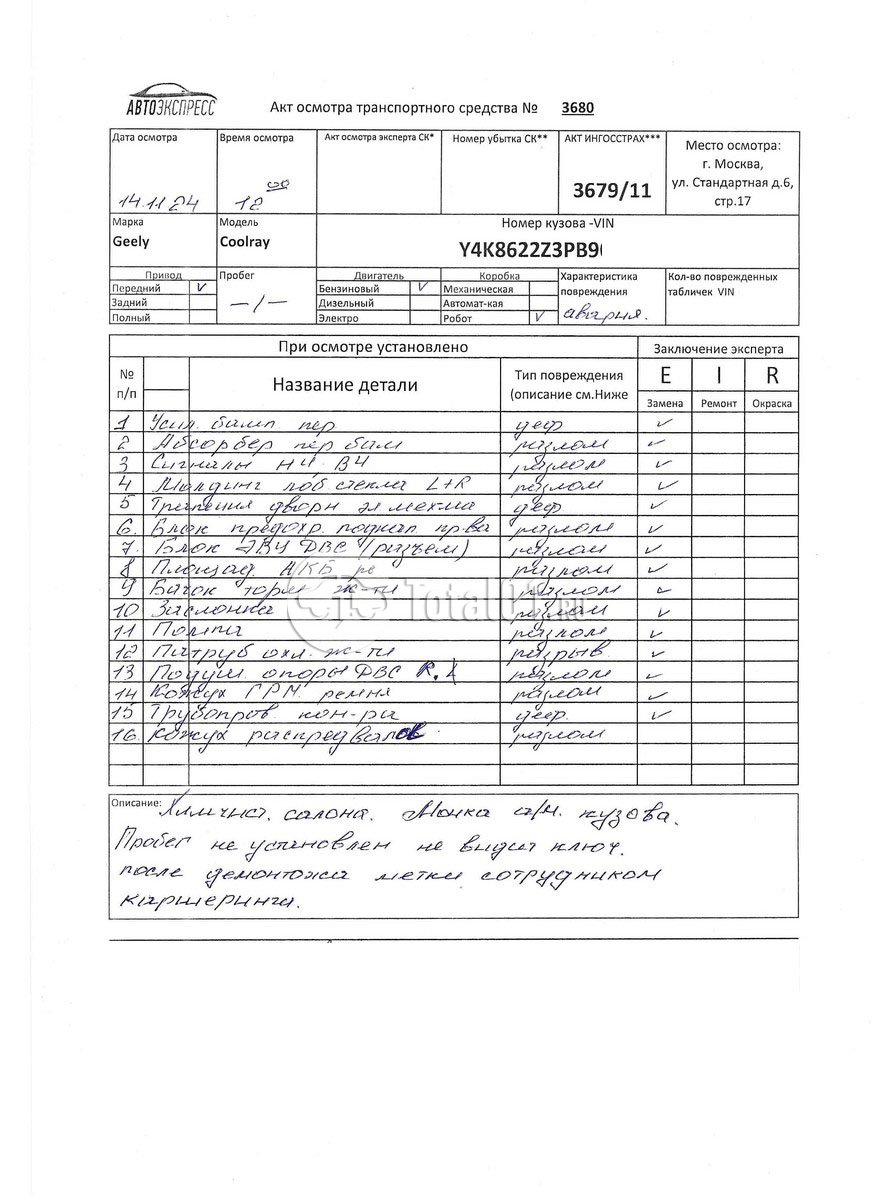 АВТОЭКСПРЕСС
Акт осмотра транспортного средства № 3680
Дата осмотра Время осмотра Акт осмотра эксперта СК* Номер убытка СК** АКТ ИНГОССТРАХ*** Место осмотра:
г. Москва,
ул. Стандартная д.6,
стр.17
14.11.24 12 00 3679/11
Марка Модель Номер кузова -VIN
Geely Coolray Y4K8622Z3PB9
Привод Пробег Двигатель Коробка Характеристика Кол-во поврежденных
Передний V Бензиновый V Механическая повреждения табличек VIN
Задний —/— Дизельный Автомат-кая авария.
Полный Электро Робот V
При осмотре установлено Заключение эксперта
№ п/п Название детали Тип повреждения (описание см.Ниже E I R
Замена Ремонт Окраска
1 Усил. бамп пер деф ✓
2 Абсорбер пер бам разлом ✓
3 Сигналы НЧ ВЧ разлом ✓
4 Молдинг лоб стекла L+R разлом ✓
5 Трапеция дворн эл мех-ма деф ✓
6. Блок предохр. подкап. пр-ва разлом ✓
7. Блок ЭБУ ДВС (разъем) разлом ✓
8 Площад. АКБ разлом ✓
9 Бачок торм ж-ти разлом ✓
10 Заслонка разлом ✓
11 Помпа разлом ✓
12 Патруб охл. ж-ти разрыв ✓
13 Подуш. опоры ДВС R. L разлом ✓
14 Кожух ГРМ. ремня разлом ✓
15 Трубопров. кон-ра деф. ✓
16. Кожух распредвалов разлом
Описание: Химчист. салона. Мойка а/м. кузова.
Пробег не установлен не видит ключ.
после демонтажа метки сотрудником
каршеринга.
TotalUT.RU